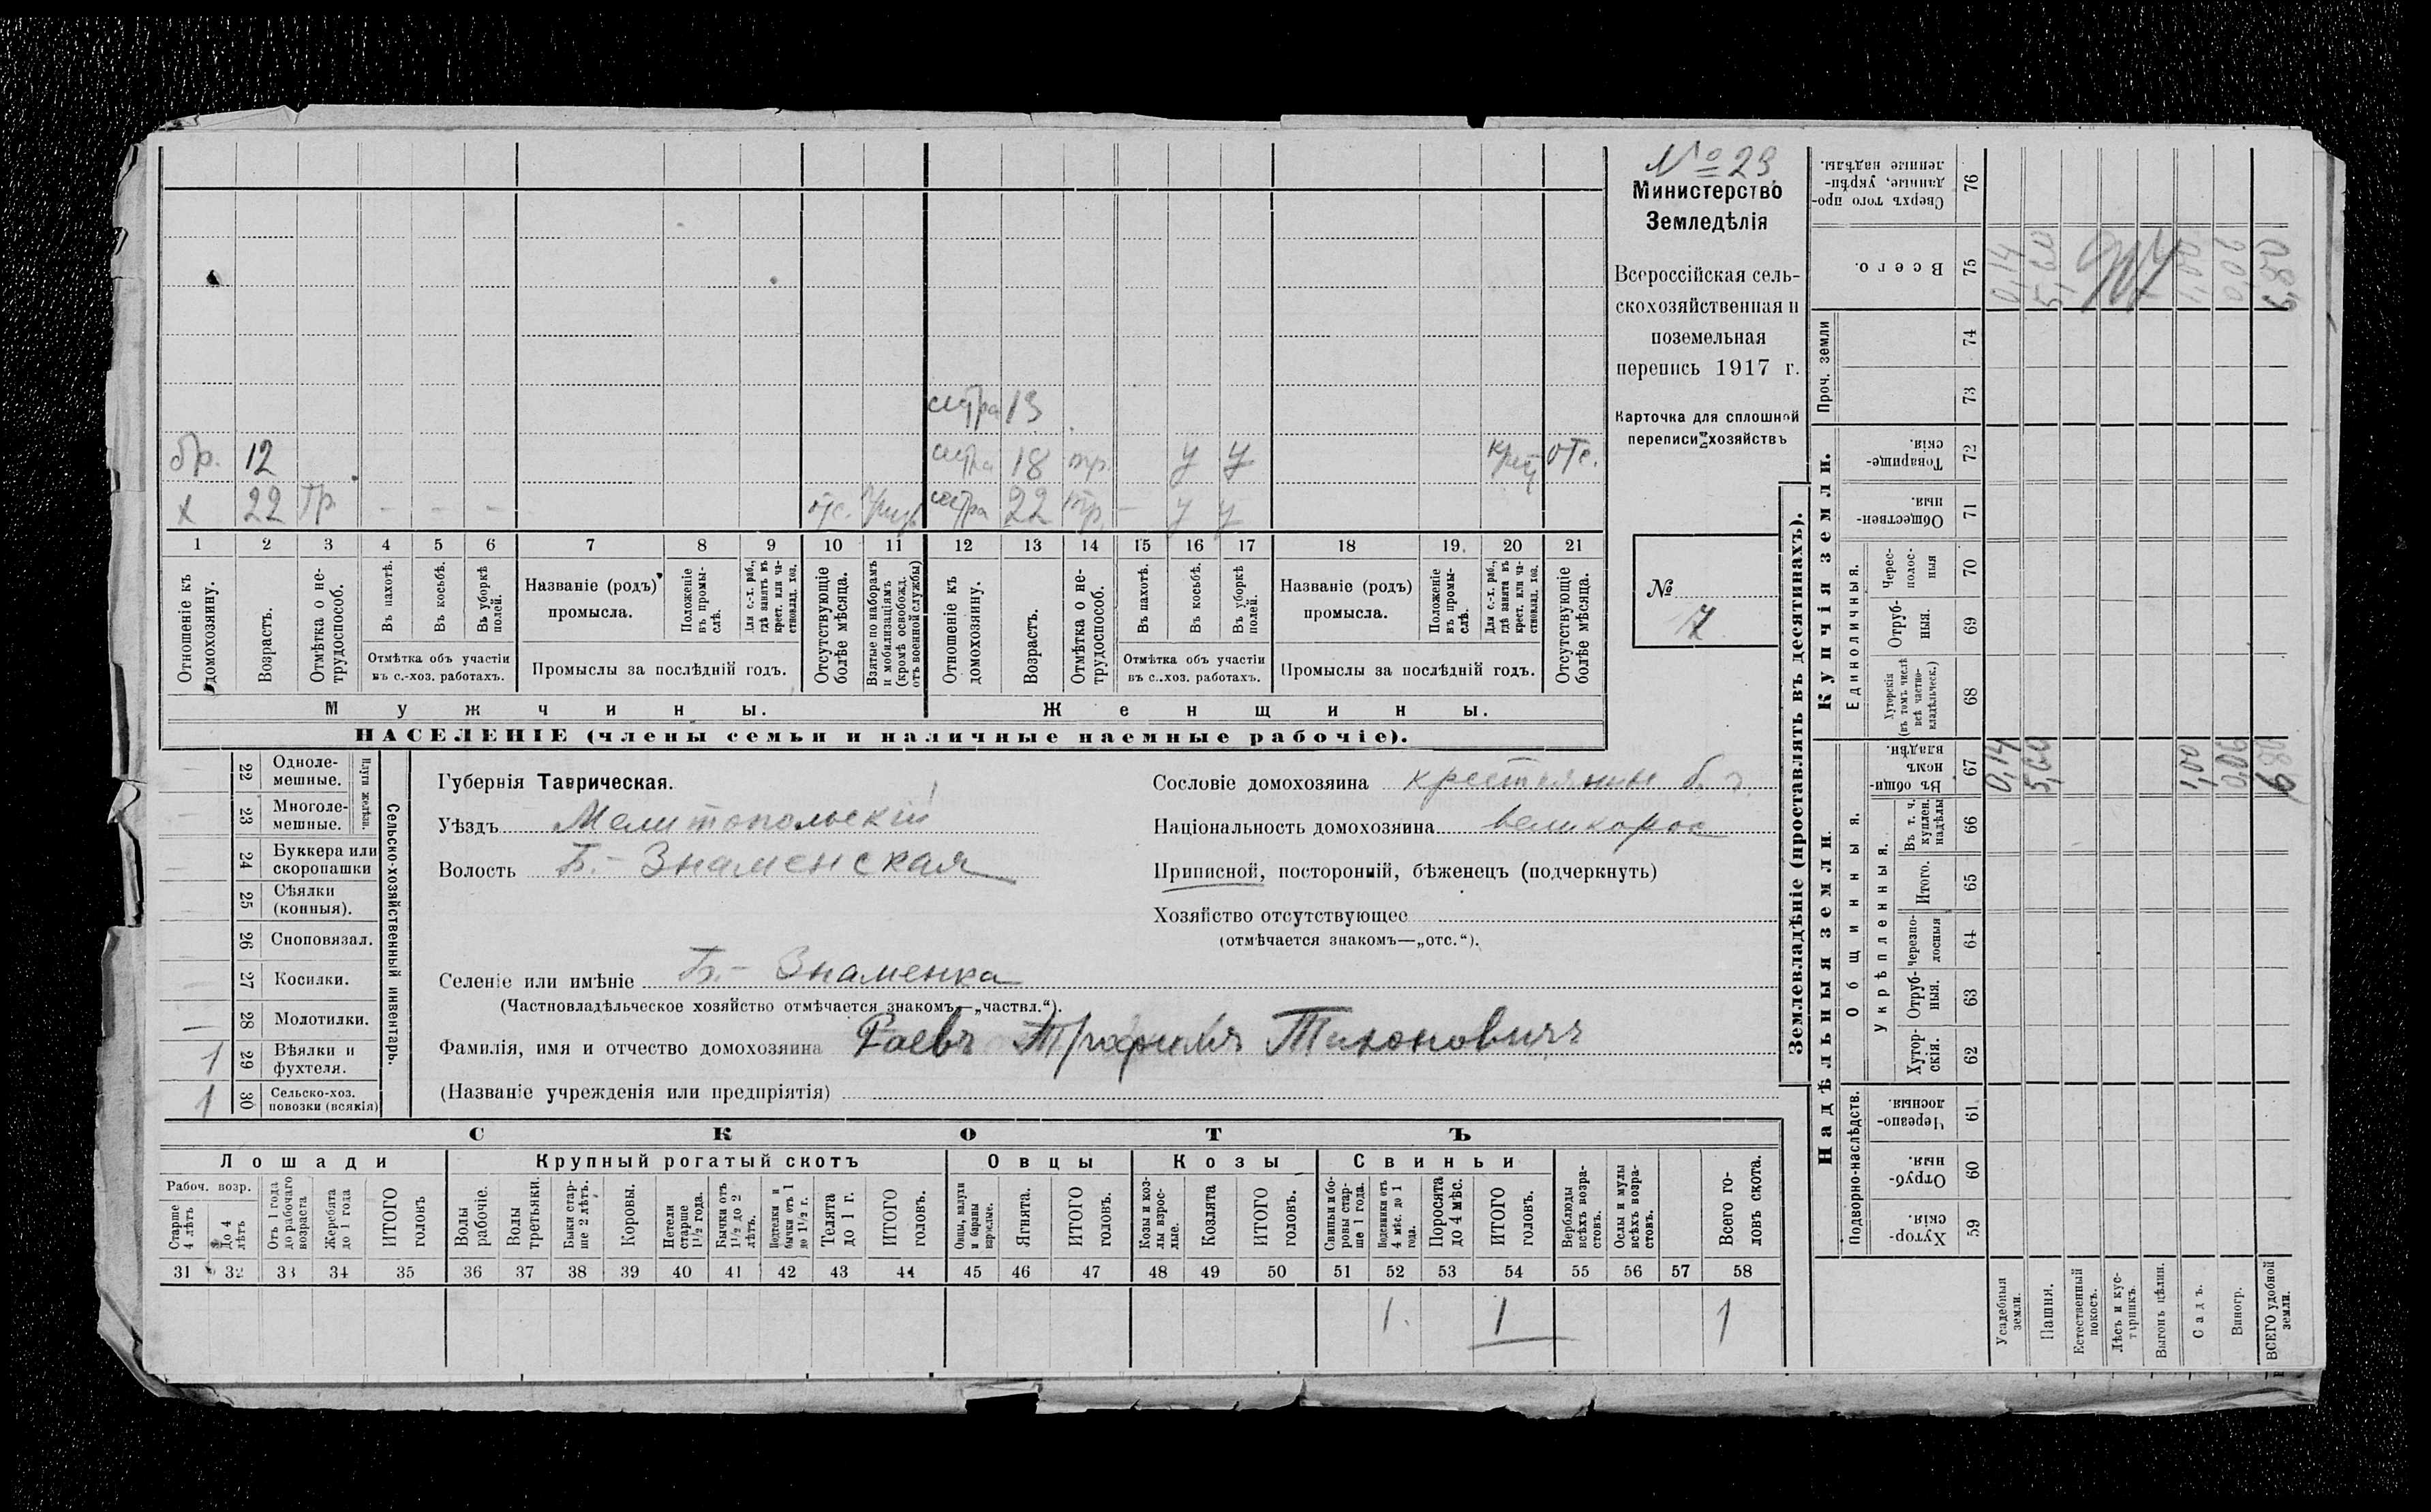 № 23
Министерство
Земледѣлія
Всероссійская сель-
скохозяйственная и
поземельная
перепись 1917 г.
Карточка для сплошной
переписи хозяйствъ
№
7
сестра 13
бр. 12 сестра 18 тр. У У крест отс.
х 22 тр - - - отс. сестра 22 тр - У У
1 2 3 4 5 6 7 8 9 10 11 12 13 14 15 16 17 18 19. 20 21
Отношеніе къ домохозяину.
Возрастъ.
Отмѣтка о не-трудоспособ.
Въ пахотѣ.
Въ косьбѣ.
Въ уборкѣ полей.
Отмѣтка объ участіи въ с.-хоз. работахъ.
Названіе (родъ) промысла.
Положеніе въ промы-слѣ.
Для с.-х. раб., гдѣ занятъ въ крест. или ча-стновлад. хоз.
Промыслы за послѣдній годъ.
Отсутствующіе болѣе мѣсяца.
Взятые по наборамъ и мобилизаціямъ (кромѣ освобожд. отъ военной службы)
Отношеніе къ домохозяину.
Возрастъ.
Отмѣтка о не-трудоспособ.
Въ пахотѣ.
Въ косьбѣ.
Въ уборкѣ полей.
Отмѣтка объ участіи въ с.-хоз. работахъ.
Названіе (родъ) промысла.
Положеніе въ промы-слѣ.
Для с.-х. раб., гдѣ занята въ крест. или ча-стновлад. хоз.
Промыслы за послѣдній годъ.
Отсутствующіе болѣе мѣсяца.
Мужчины. Женщины.
НАСЕЛЕНІЕ (члены семьи и наличные наемные рабочіе).
Сельско-хозяйственный инвентарь.
Плуги желѣзн.
22 Одноле-мешные.
23 Многоле-мешные.
24 Буккера или скоропашки
25 Сѣялки (конныя).
26 Сноповязал.
27 Косилки.
28 Молотилки.
1 29 Вѣялки и фухтеля.
1 30 Сельско-хоз. повозки (всякія)
Губернія Таврическая.
Уѣздъ Мелитопольскій
Волость Б.-Знаменская
Селеніе или имѣніе Б.-Знаменка
(Частновладѣльческое хозяйство отмѣчается знакомъ—„частвл.“).
Фамилія, имя и отчество домохозяина Раевъ Трофимъ Тихоновичъ
(Названіе учрежденія или предпріятія)
Сословіе домохозяина крестьянин б. г.
Національность домохозяина великорос
Приписной, посторонній, бѣженецъ (подчеркнуть)
Хозяйство отсутствующее
(отмѣчается знакомъ—„отс.“).
СКОТЪ
Лошади Крупный рогатый скотъ Овцы Козы Свиньи
Рабоч. возр.
Старше 4 лѣтъ
До 4 лѣтъ
Отъ 1 года до рабочаго возраста
Жеребята до 1 года
ИТОГО головъ
Волы рабочіе.
Волы третьяки.
Быки стар-ше 2 лѣтъ.
Коровы.
Нетели старше 1½ года.
Бычки отъ 1½ до 2 лѣтъ.
Подтелки и бычки отъ 1 до 1½ г.
Телята до 1 г.
ИТОГО головъ.
Овцы, валухи и бараны взрослые.
Ягнята.
ИТОГО головъ.
Козы и коз-лы взрос-лые.
Козлята
ИТОГО головъ.
Свиньи и бо-ровы стар-ше 1 года.
Подсвинки отъ 4 мѣс. до 1 года.
Поросята до 4 мѣс.
ИТОГО головъ.
Верблюды всѣхъ возра-стовъ.
Ослы и мулы всѣхъ возра-стовъ.
Всего го-ловъ скота.
31 32 33 34 35 36 37 38 39 40 41 42 43 44 45 46 47 48 49 50 51 52 53 54 55 56 57 58
1. 1 1
Землевладѣніе (проставлять въ десятинахъ).
Надѣльныя земли
Купчія земли.
Проч. земли
Подворно-наслѣдств.
Общинныя.
Укрѣпленныя.
Единоличныя.
Хутор-скія. 59
Отруб-ныя. 60
Черезпо-лосныя. 61
Хутор-скія. 62
Отруб-ныя. 63
Черезпо-лосныя 64
Итого. 65
Въ т. ч. куплен. надѣлы 66
Въ общин-номъ владѣн. 67
Хуторскія (въ томъ числѣ всѣ частно-владѣльческ.) 68
Отруб-ныя. 69
Черес-полос-ныя 70
Обществен-ныя. 71
Товарище-скія. 72
73
74
Всего. 75
Сверхъ того про-данные, укрѣп-ленные надѣлы. 76
Усадебныя земли. 0,14 0,14
Пашня. 5,60 5,60
Естественный покосъ.
Лѣсъ и кус-тарникъ.
Выгонъ цѣлин.
Садъ. 1,00 1,00
Виногр. 0,06 0,06
ВСЕГО удобной земли. 6,80 6,80